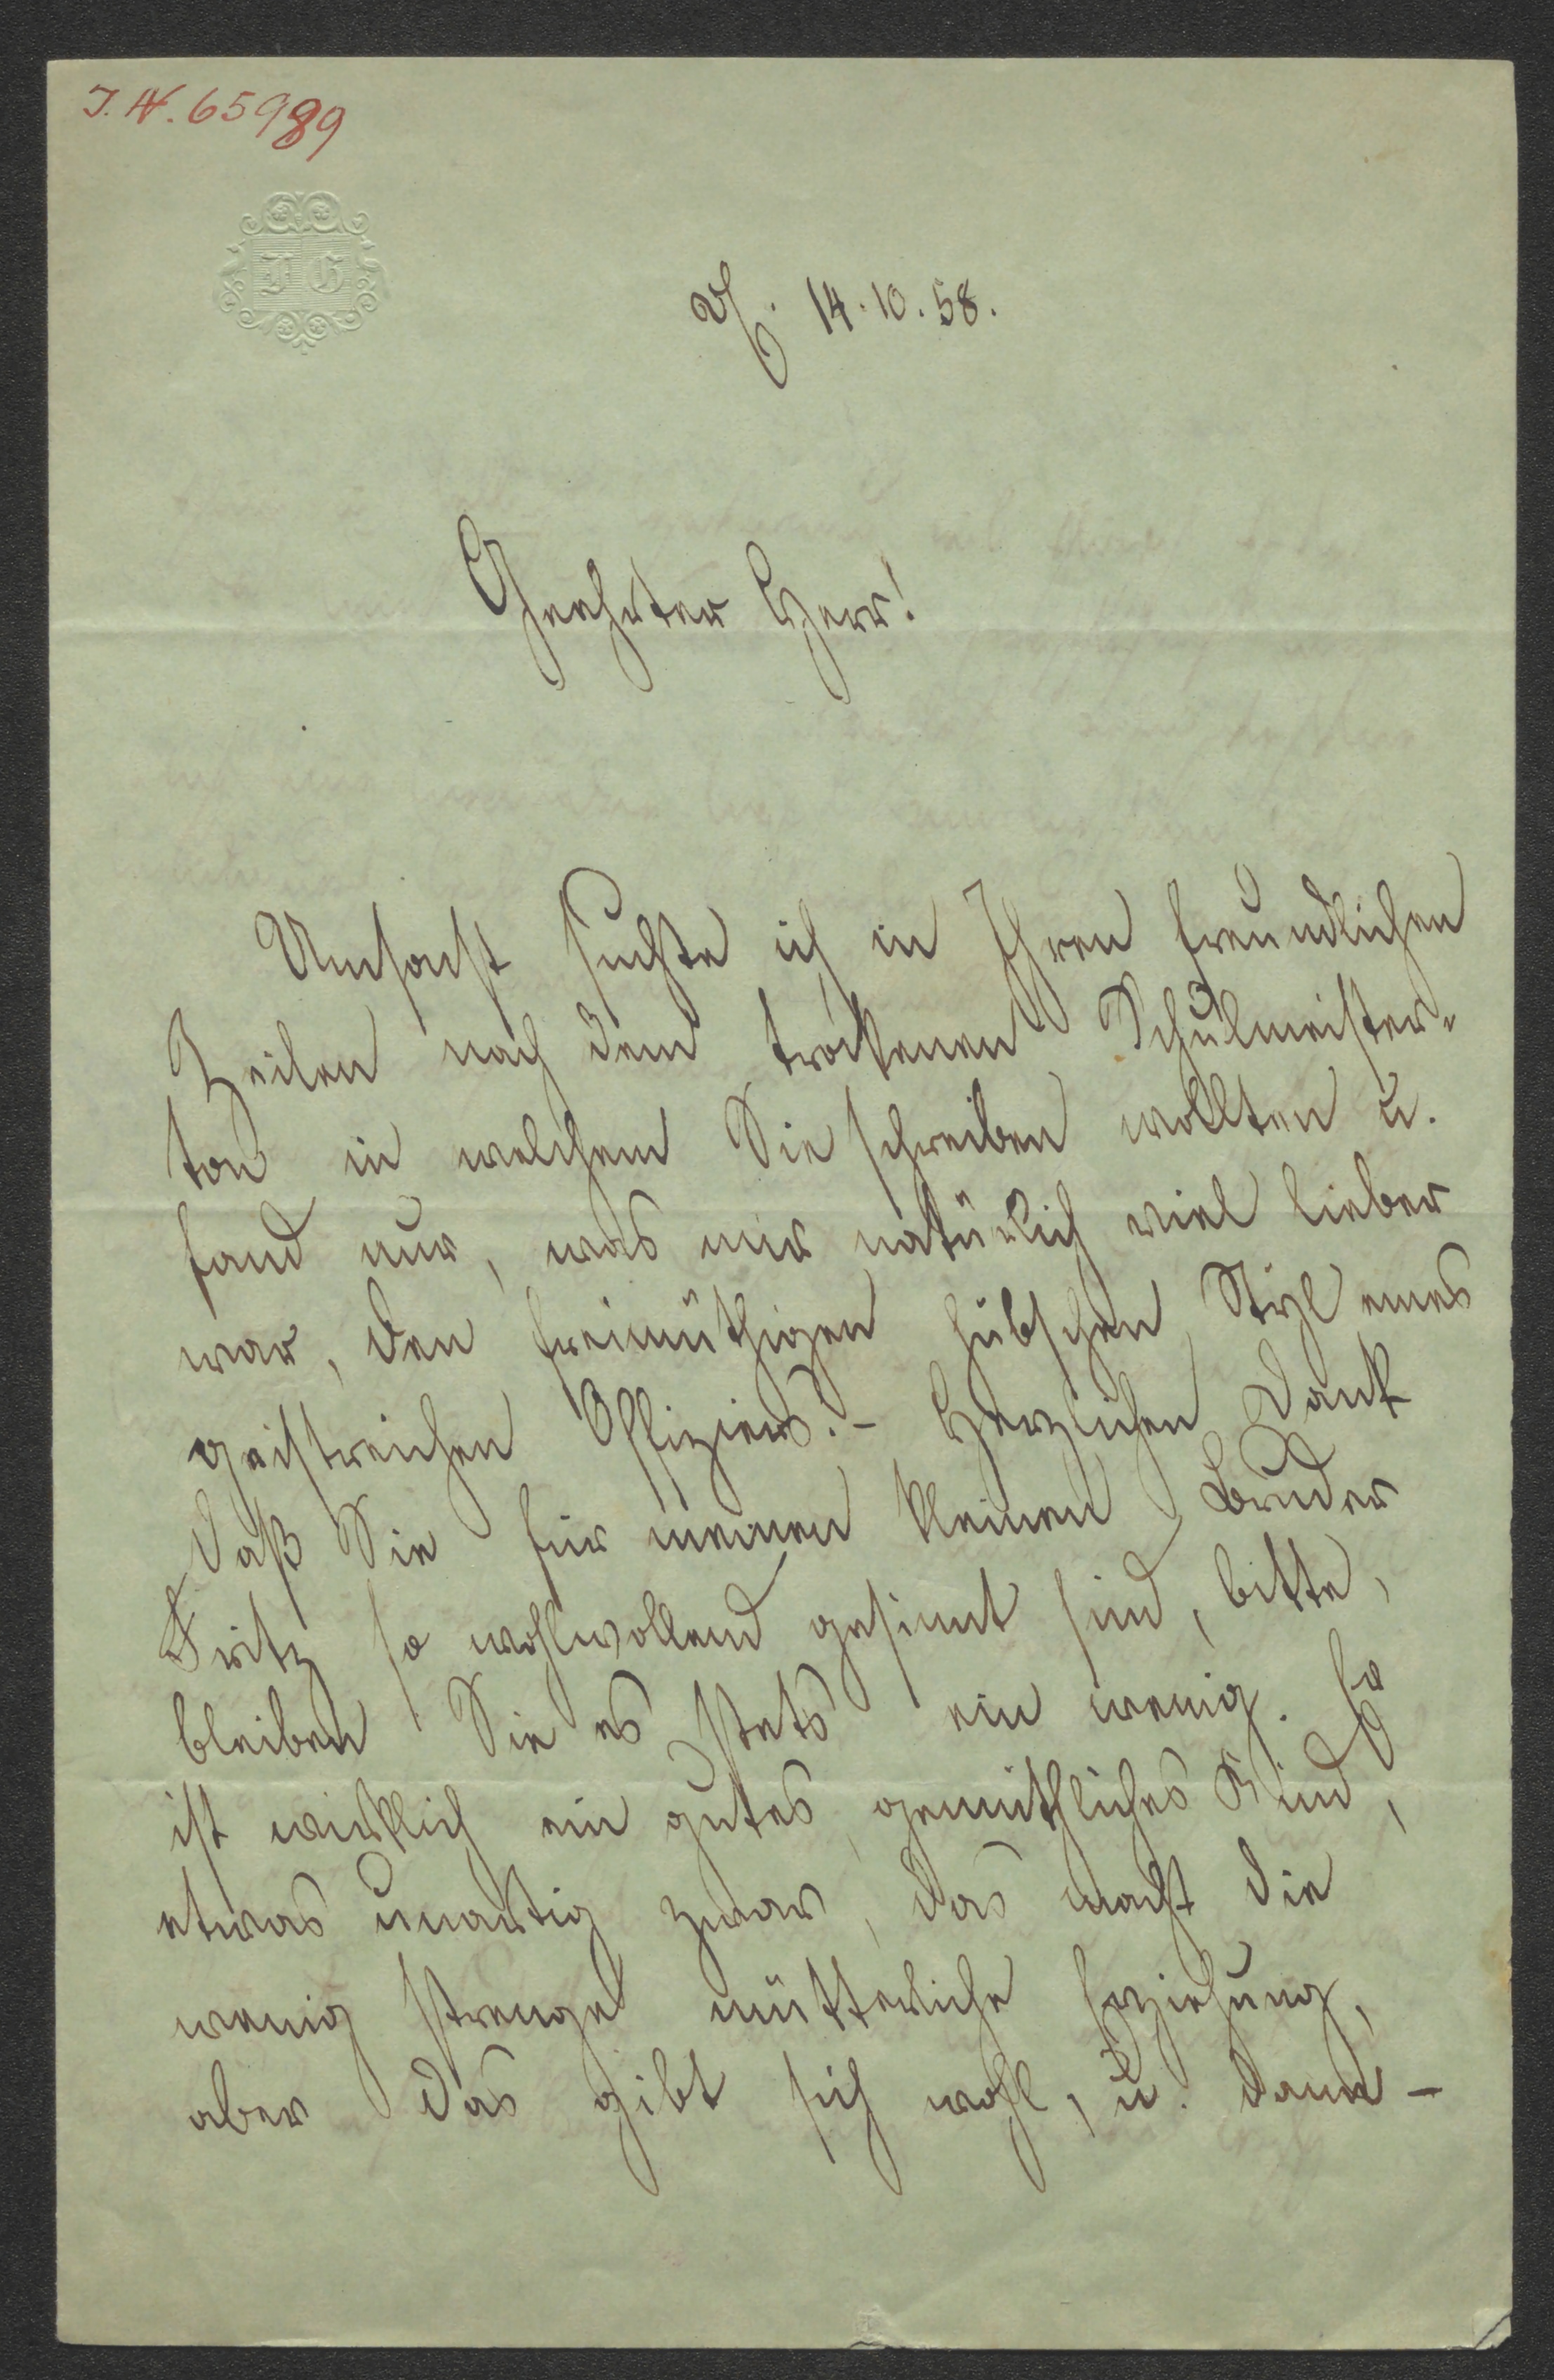 I.N. 65989
I G
14.10.58.
Geehrter Herr!
Umsonst suchte ich in Ihren freundlichen
Zeilen nach dem trockenen Schulmeister-
ton in welchem Sie schreiben wollten u.
fand nur, was mir natürlich viel lieber
war, den freimüthigen hübschen Styl eines
geistreichen Offiziers. – Herzlichen Dank
daß Sie für meinen kleinen Bruder
Fritz so wohlwollend gesinnt sind, bitte,
bleiben Sie es stets ein wenig. Er
ist wirklich ein gutes, gemüthliches Kind,
etwas unartig zwar, das macht die
wenig strenge mütterliche Erziehung,
aber das gibt sich wohl, u. dann –